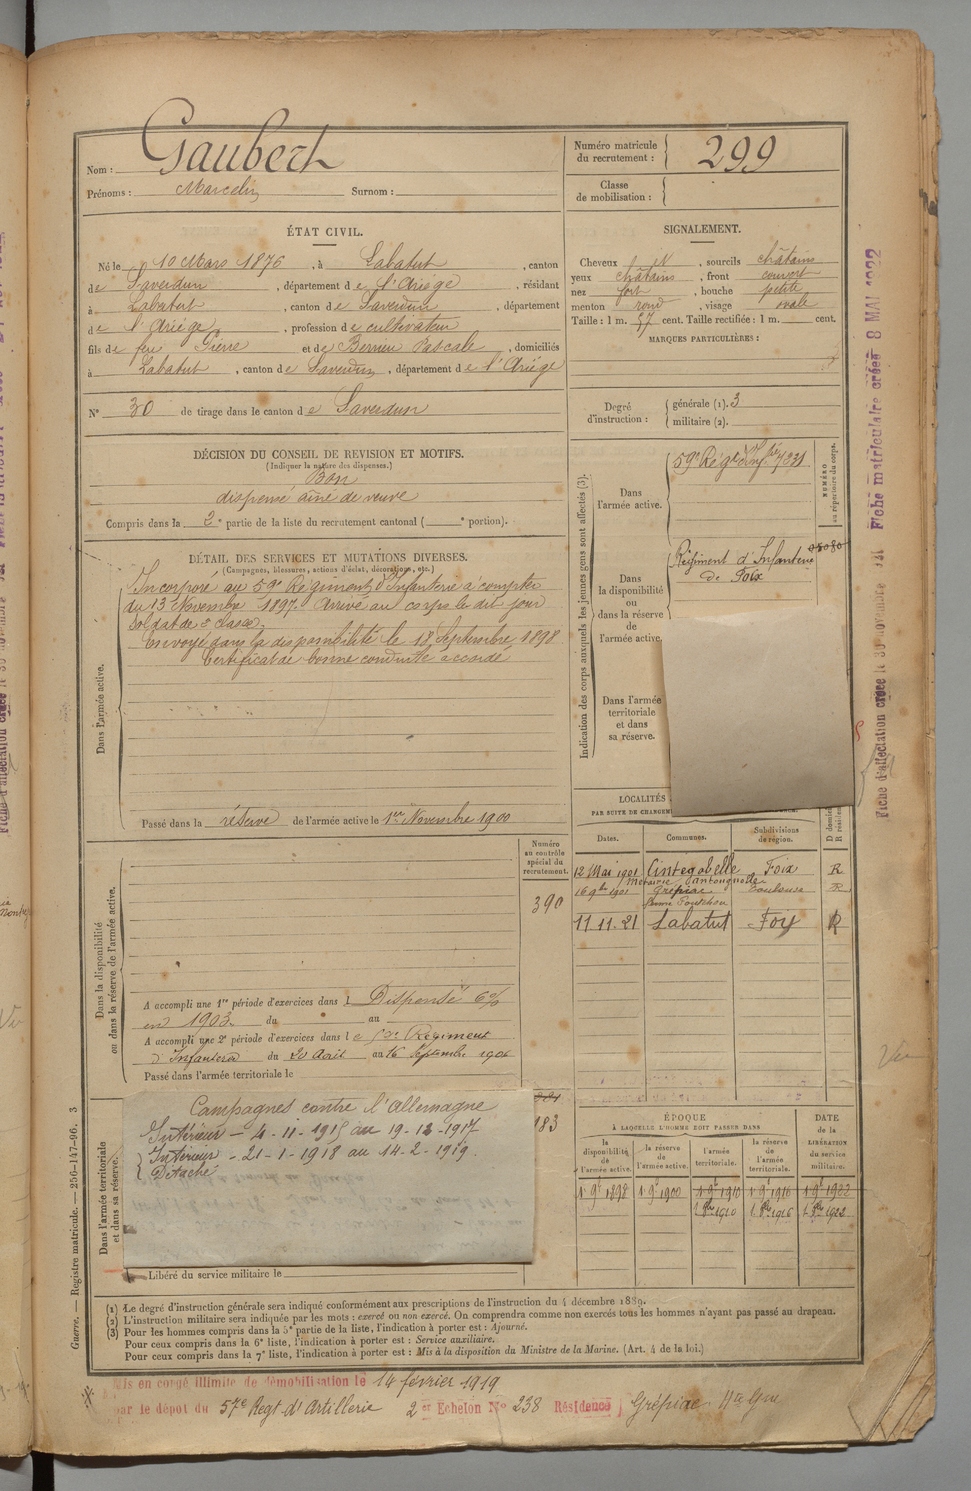 Nom : Gaubert
Prénoms : Marcelin Surnom :
Numéro matricule du recrutement : 299
Classe de mobilisation :
ÉTAT CIVIL.
Né le 10 Mars 1876, à Labatut, canton
de Saverdun, département de l'Ariège, résidant
à Labatut, canton de Saverdun, département
de l'Ariège, profession de cultivateur
fils de feu Pierre et de Bernin Pascale, domiciliés
à Labatut, canton de Saverdun, département de l'Ariège
N° 30 de tirage dans le canton de Saverdun
SIGNALEMENT.
Cheveux , sourcils châtains
yeux châtains, front couvert
nez fort, bouche petite
menton rond, visage ovale
Taille : 1 m. 57 cent. Taille rectifiée : 1 m. cent.
MARQUES PARTICULIÈRES :
Degré d'instruction : générale (1). 3
militaire (2).
DÉCISION DU CONSEIL DE REVISION ET MOTIFS.
(Indiquer la nature des dispenses.)
Bon
dispensé aîné de veuve
Compris dans la 2e partie de la liste du recrutement cantonal ( e portion).
DÉTAIL DES SERVICES ET MUTATIONS DIVERSES.
(Campagnes, blessures, actions d'éclat, décorations, etc.)
Dans l'armée active.
Incorporé au 59e Régiment d'Infanterie à compter
du 13 Novembre 1897. Arrivé au corps le dit jour
Soldat de 2e classe.
Envoyé dans la disponibilité le 18 Septembre 1898
Certificat de bonne conduite accordé
Passé dans la réserve de l'armée active le 1er Novembre 1900
Indication des corps auxquels les jeunes gens sont affectés (3).
NUMÉRO au répertoire du corps.
Dans l'armée active.
59e Régt d'Infie 7231
Dans la disponibilité ou dans la réserve de l'armée active.
Régiment d'Infanterie
de Foix
Dans l'armée territoriale et dans sa réserve.
LOCALITÉS
PAR SUITE DE CHANGEM
Dates. Communes. Subdivisions de région. D domici R résiden
12 Mai 1901 Cintegabelle Foix R
16 9bre 1901 Grépiac Toulouse R
11.11.21 Labatut Foix R
Dans la disponibilité ou dans la réserve de l'armée active.
Numéro au contrôle spécial du recrutement.
390
A accompli une 1re période d'exercices dans l Dispensé 6%
en 1903 du au
A accompli une 2e période d'exercices dans le Régiment
d'Infanterie du 20 Août au 16 Septembre 1906
Passé dans l'armée territoriale le
Dans l'armée territoriale et dans sa réserve.
183
Campagnes contre l'Allemagne
Intérieur - 4-11-1915 au 19-12-1917
Intérieur - 21-1-1918 au 14-2-1919.
Détaché
Libéré du service militaire le
ÉPOQUE
À LAQUELLE L'HOMME DOIT PASSER DANS
DATE de la LIBÉRATION du service militaire.
la disponibilité de l'armée active. la réserve de l'armée active. l'armée territoriale. la réserve de l'armée territoriale.
1 9e 1898 1 9e 1900 1 9e 1910 1 9e 1916 1 9e 1922
1 8bre 1910 1 8bre 1916 1 8bre 1922
(1) Le degré d'instruction générale sera indiqué conformément aux prescriptions de l'instruction du 4 décembre 1889.
(2) L'instruction militaire sera indiquée par les mots : exercé ou non exercé. On comprendra comme non exercés tous les hommes n'ayant pas passé au drapeau.
(3) Pour les hommes compris dans la 5e partie de la liste, l'indication à porter est : Ajourné.
Pour ceux compris dans la 6e liste, l'indication à porter est : Service auxiliaire.
Pour ceux compris dans la 7e liste, l'indication à porter est : Mis à la disposition du Ministre de la Marine. (Art. 4 de la loi.)
Guerre. — Registre matricule. — 256-147-96. 3
Mis en congé illimité de démobilisation le 14 février 1919
par le dépot du 57e Regt d'Artillerie 2er Echelon N° 238 Résidence Grépiac Hte Gne
Fiche matriculaire créée 8 MAI 1922
Fiche d'affectation créée le 30 novembre